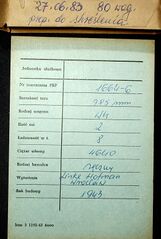 27.06.83 80 wag.
prep. do skreślenia
Jednostka służbowa
Nr inwentarza PKP 1664-6
Szerokość toru 785 mm
Rodzaj wagonu Wy
Ilość osi 2
Ładowność w t. 8
Ciężar własny 4640
Rodzaj hamulca ręczny
Wytwórnia Linke Hofman
Wrocław
Rok budowy 1943